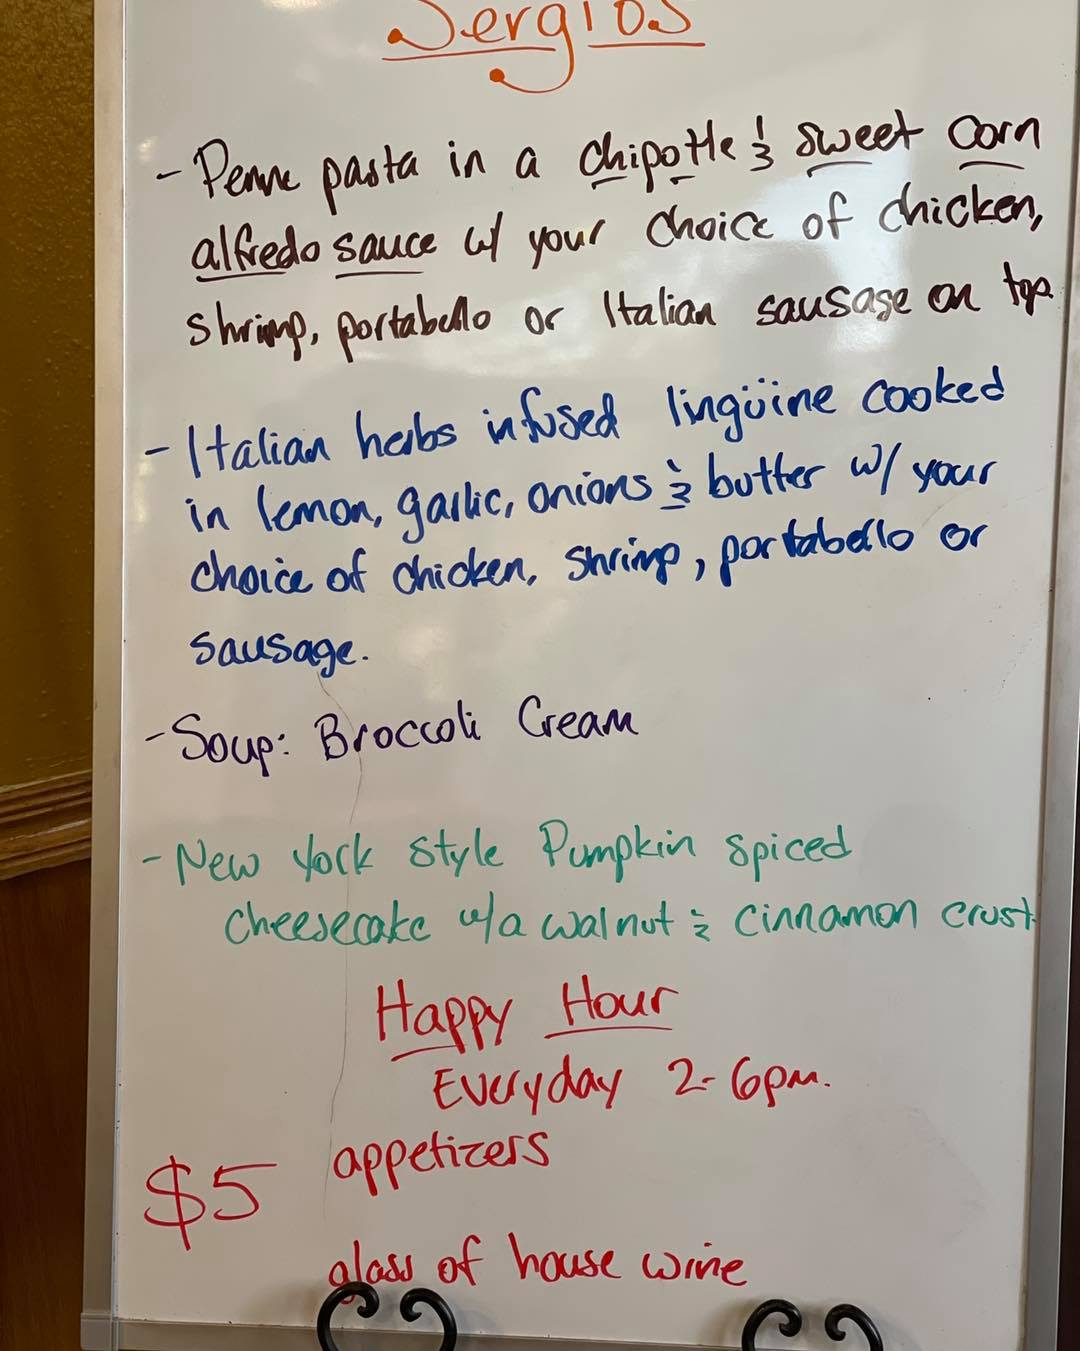 Sergios
- Penne pasta in a chipotle & sweet corn
alfredo sauce w/ your choice of chicken,
shrimp, portabello or Italian sausage on top.
- Italian herbs infused lingüine cooked
in lemon, garlic, onions & butter w/ your
choice of chicken, shrimp, portabello or
sausage.
- Soup: Broccoli Cream
- New York style Pumpkin spiced
cheesecake w/a walnut & cinnamon crust
Happy Hour
Everyday 2-6pm.
appetizers
$5
glass of house wine